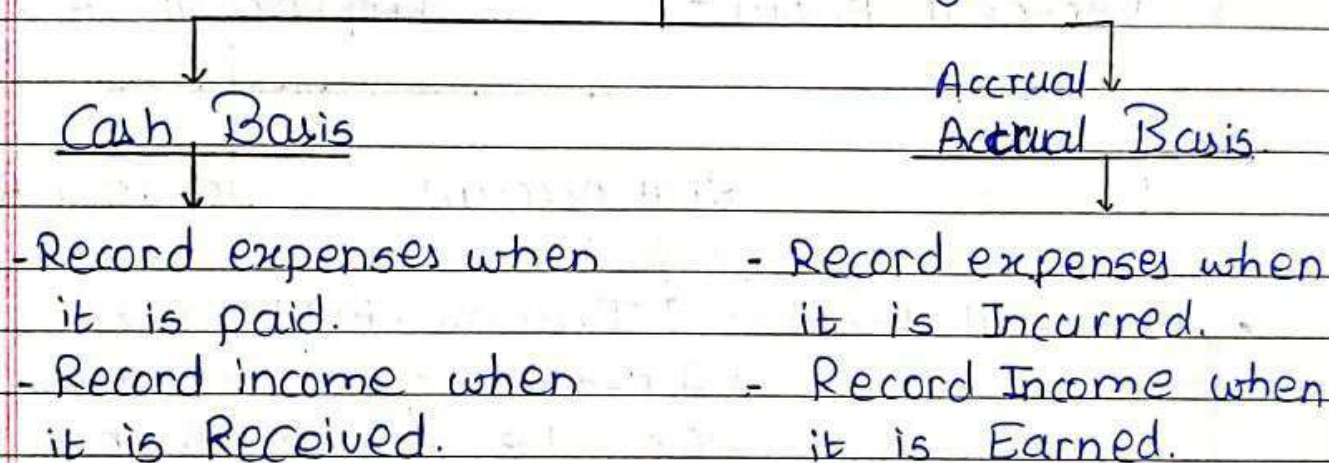 Cash Basis
- Record expenses when
it is paid.
- Record income when
it is Received.
Accrual
Accrual Basis
- Record expenses when
it is Incurred.
- Record Income when
it is Earned.